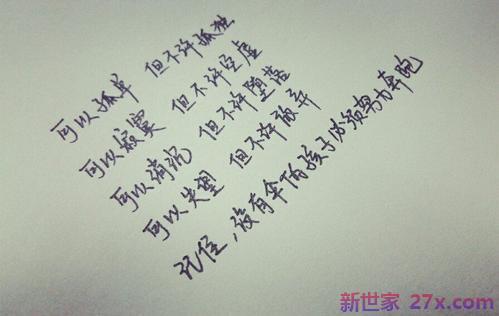 可以孤单 但不许孤独
可以寂寞 但不许空虚
可以消沉 但不许堕落
可以失望 但不许放弃
记住，没有伞的孩子必须努力奔跑
新世家 27x.com